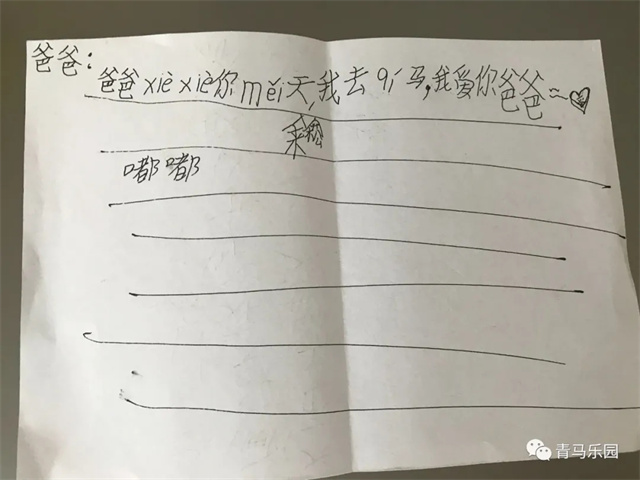 爸爸:
爸爸xiè xiè你měi天,我去qí马,我爱你爸爸~
嘟嘟
青马乐园